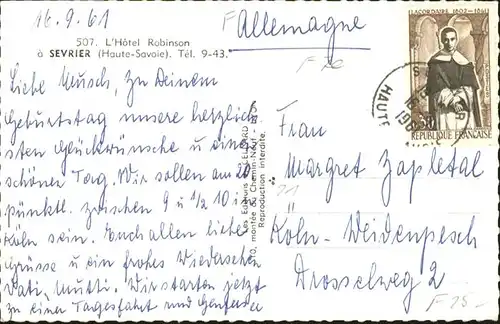 16.9.61
Allemagne
F
507. L'Hôtel Robinson
à SEVRIER (Haute-Savoie). Tél. 9-43.
LACORDAIRE 1802-1861
REPUBLIQUE FRANÇAISE
HAUTE
Liebe Musch, zu Deinem
Geburtstag unsere herzlich-
sten Glückwünsche u. einen
schönen Tag. Wir sollen am 20.
pünktl. zwischen 9 u. ½ 10 in
Köln sein. Euch allen liebe
Grüsse u. ein frohes Wiedersehen
Vati, Mutti. Wir starten jetzt
zu einer Tagesfahrt nach Genfersee
10, montée du Chemin-Neuf
Reproduction interdite.
Frau
Margret Zapletal
Köln-Weidenpesch
Drosselweg 2
F 25-